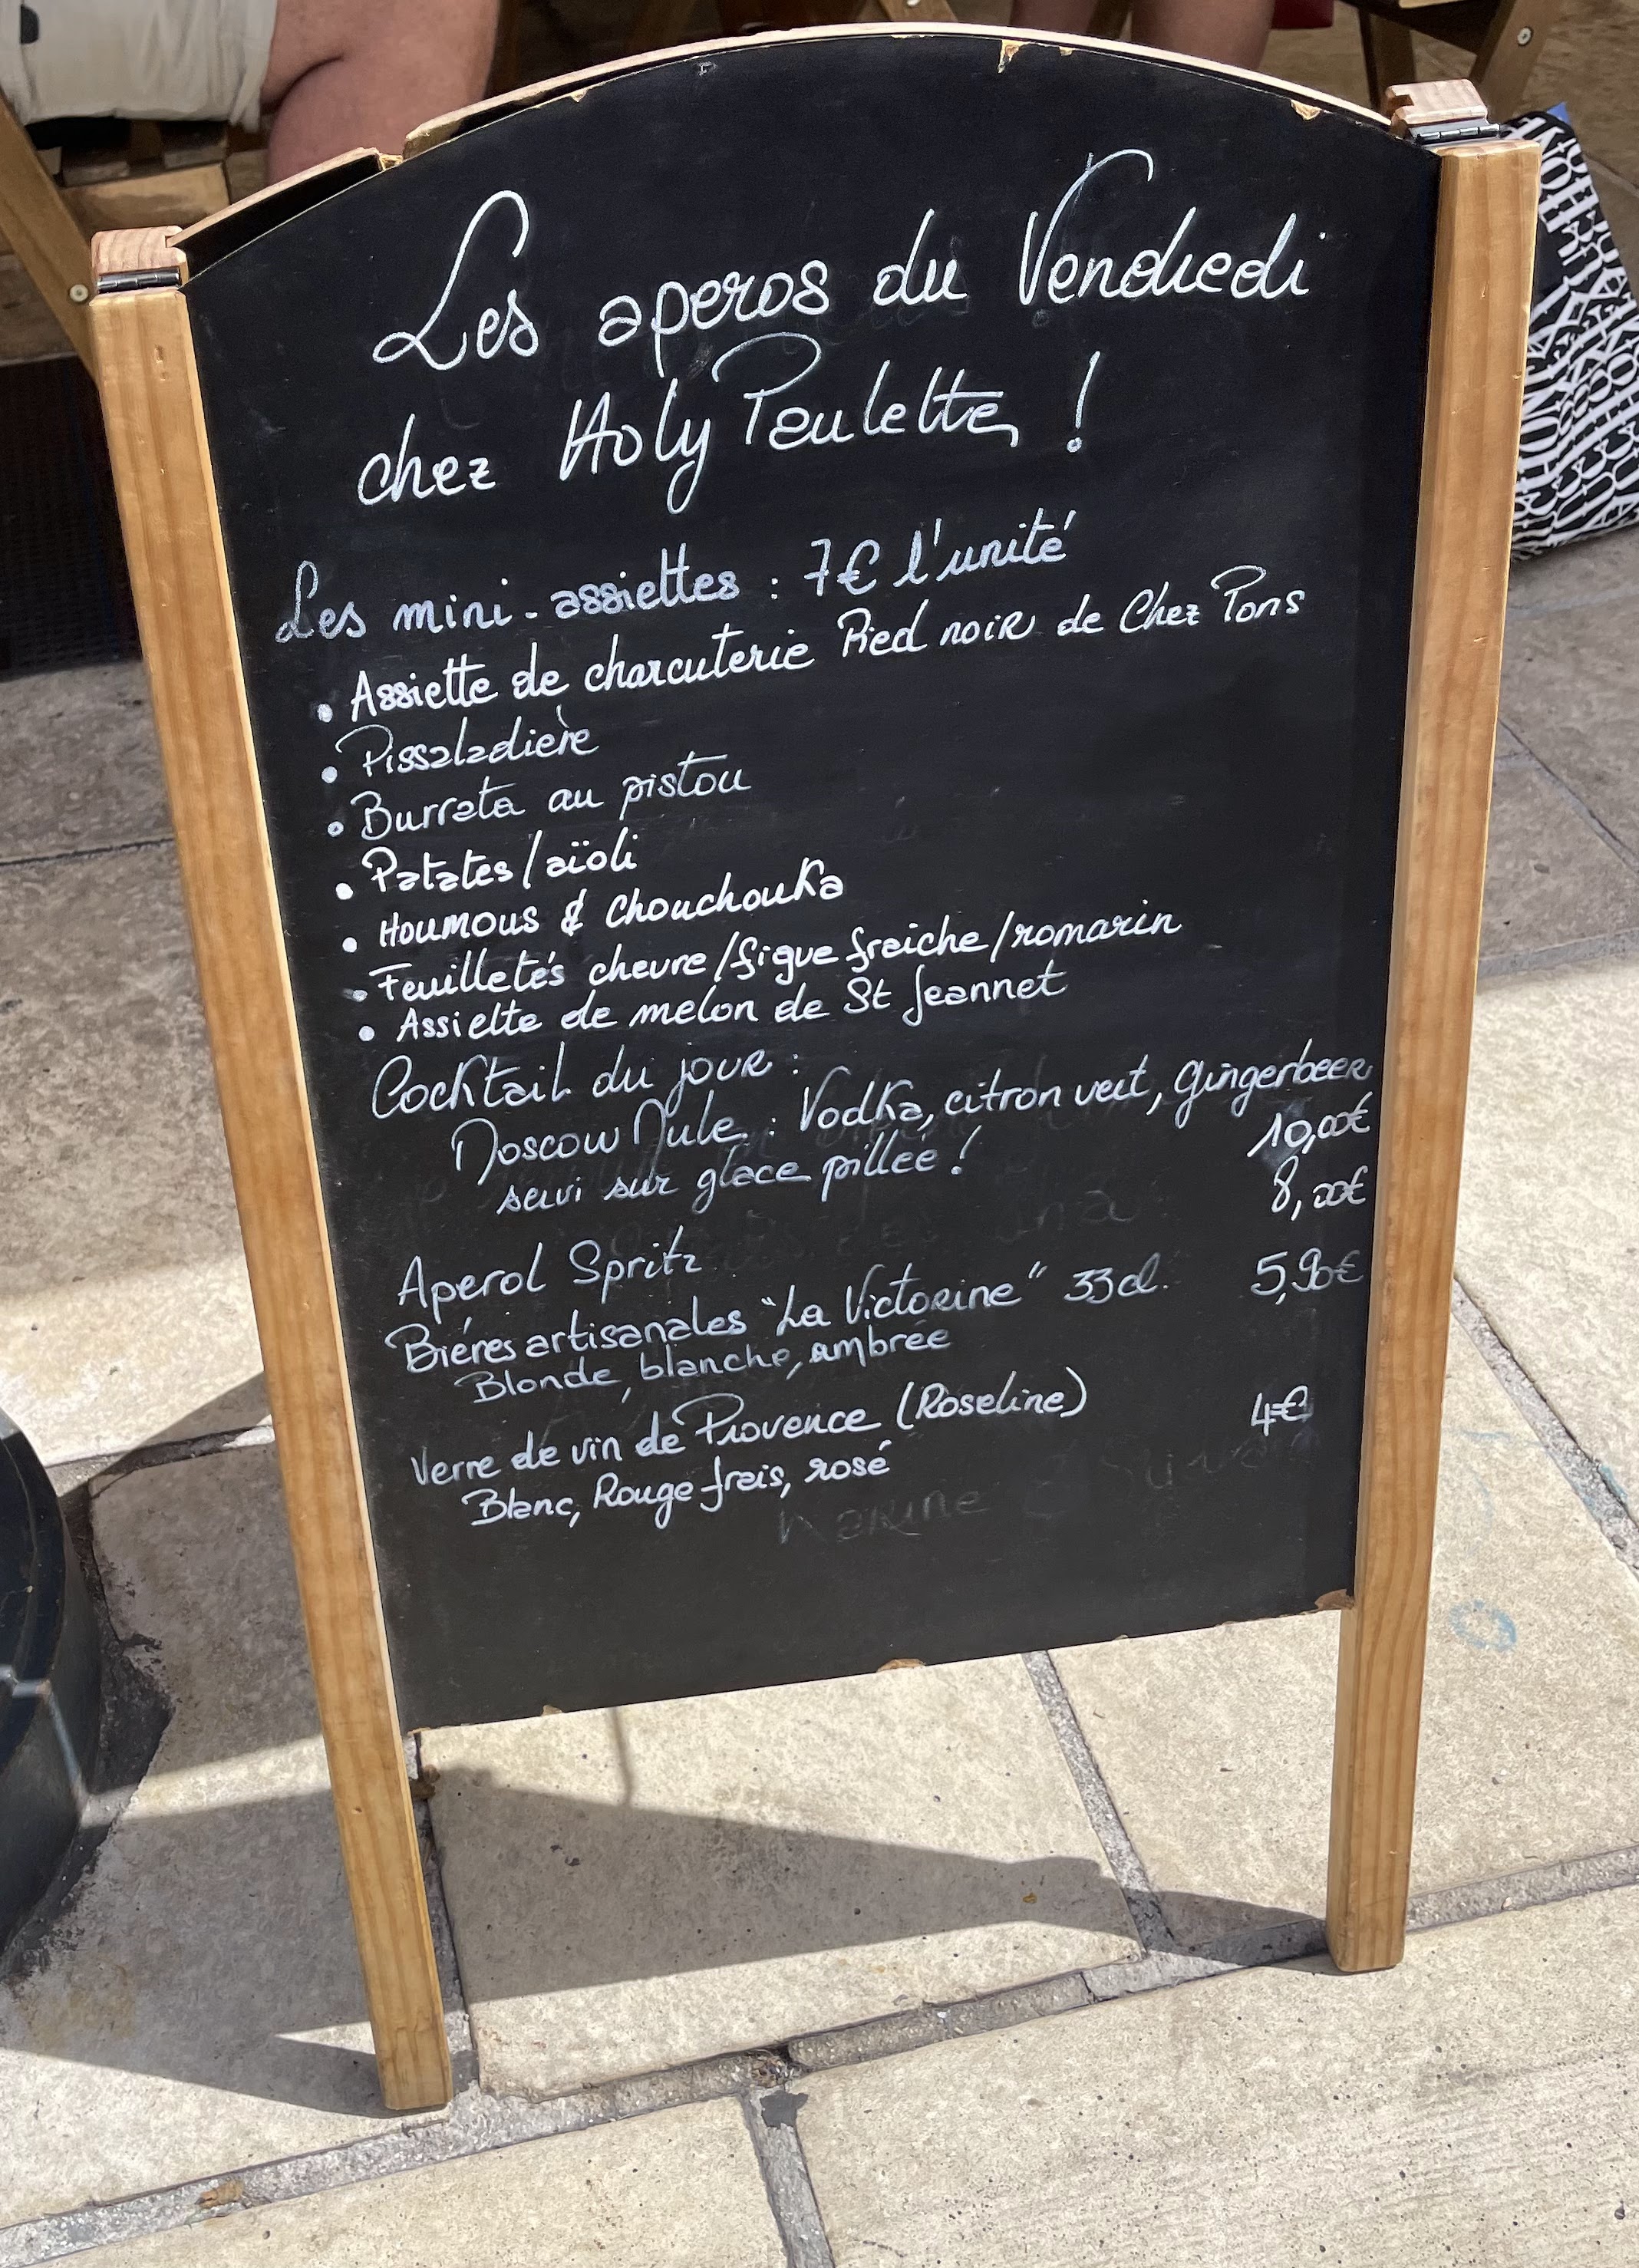 Les aperos du Vendredi
chez Holy Poulette !
Les mini-assiettes : 7€ l'unité
• Assiette de charcuterie Pied noir de Chez Pons
• Pissaladière
• Burrata au pistou
• Patates/aïoli
• Houmous & Chouchouka
• Feuilletés chevre/figue fraiche/romarin
• Assiette de melon de St Jeannet
Cocktail du jour :
Moscow Mule : Vodka, citron vert, Gingerbeer
servi sur glace pillée ! 10,00€
Aperol Spritz 8,00€
Bières artisanales "La Victorine" 33cl. 5,90€
Blonde, blanche, ambrée
Verre de vin de Provence (Roseline) 4€
Blanc, Rouge frais, rosé